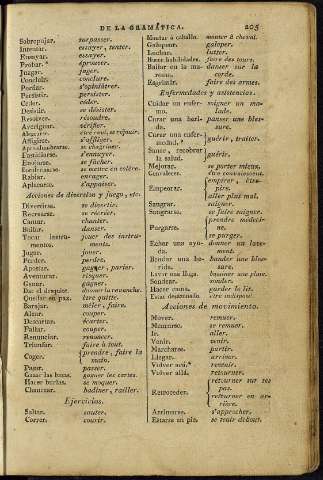 DE LA GRAMÁTICA. 205
Sobrepujar. surpasser.
Intentar. essayer, tenter.
Ensayar. essayer.
Probar.* éprouver.
Juzgar. juger.
Concluir. conclure.
Porfiar. s'opiniâtrer.
Persistir. persister.
Ceder. céder.
Desistir. se désister.
Resolver. résoudre.
Averiguar. vérifier.
Alegrarse. être réjoui, se réjouir.
Afligirse. s'affliger.
Apesadumbrarse. se chagriner.
Enfadarse. s'ennuyer.
Enojarse. se fâcher.
Encolerizarse. se mettre en colère.
Rabiar. enrager.
Aplacarse. s'appaiser.
Acciones de diversion y juego, etc.
Divertirse. se divertir.
Recrearse. se récréer.
Cantar. chanter.
Bailar. danser.
Tocar instru- jouer des instru-
mentos. mens.
Jugar. jouer.
Perder. perdre.
Apostar. gager, parier.
Aventurar. risquer.
Ganar. gagner.
Dar el desquite. donner la revanche.
Quedar en paz. être quitte.
Barajar. mêler, faire.
Alzar. couper.
Descartar. écarter.
Fallar. couper.
Renunciar. renoncer.
Triunfar. faire à tout.
Coger. { prendre, faire la
main.
Pagar. passer.
Ganar las bazas. gagner les cartes.
Hacer burlas. se moquer.
Chancear. badiner, railler.
Ejercicios.
Saltar. sauter.
Correr. courir.
Montar á caballo. monter à cheval.
Galopear. galoper.
Luchar. lutter.
Hacer habilidades. faire des tours.
Bailar en la ma- danser sur la
roma. corde.
Esgrimir. faire des armes.
Enfermedades y asistencias.
Cuidar un enfer- soigner un ma-
mo. lade.
Curar una heri- panser une bles-
da. sure.
Curar una enfer-
medad.* } guérir, traiter.
Sanar, recobrar
la salud. } guérir.
Mejorar. se porter mieux.
Convalecer. être convalescent.
Empeorar. { empirer, être
pire.
aller plus mal.
Sangrar. saigner.
Sangrarse. se faire saigner.
Purgarse. { prendre médeci-
ne.
se purger.
Echar una ayu- donner un lave-
da. ment.
Bendar una he- bander une bles-
rida. sure.
Lavar una llaga. bassiner une plaie.
Sondear. sonder.
Hacer cama. garder le lit.
Estar destemplado. être indisposé.
Acciones de movimiento.
Mover. remuer.
Menearse. se remuer.
Ir. aller.
Venir. venir.
Marcharse. partir.
Llegar. arriver.
Volver acá.* revenir.
Volver allá. retourner.
Retroceder. { retourner sur ses
pas.
retourner en ar-
rière.
Arrimarse. s'approcher.
Estarse en pie. se tenir debout.